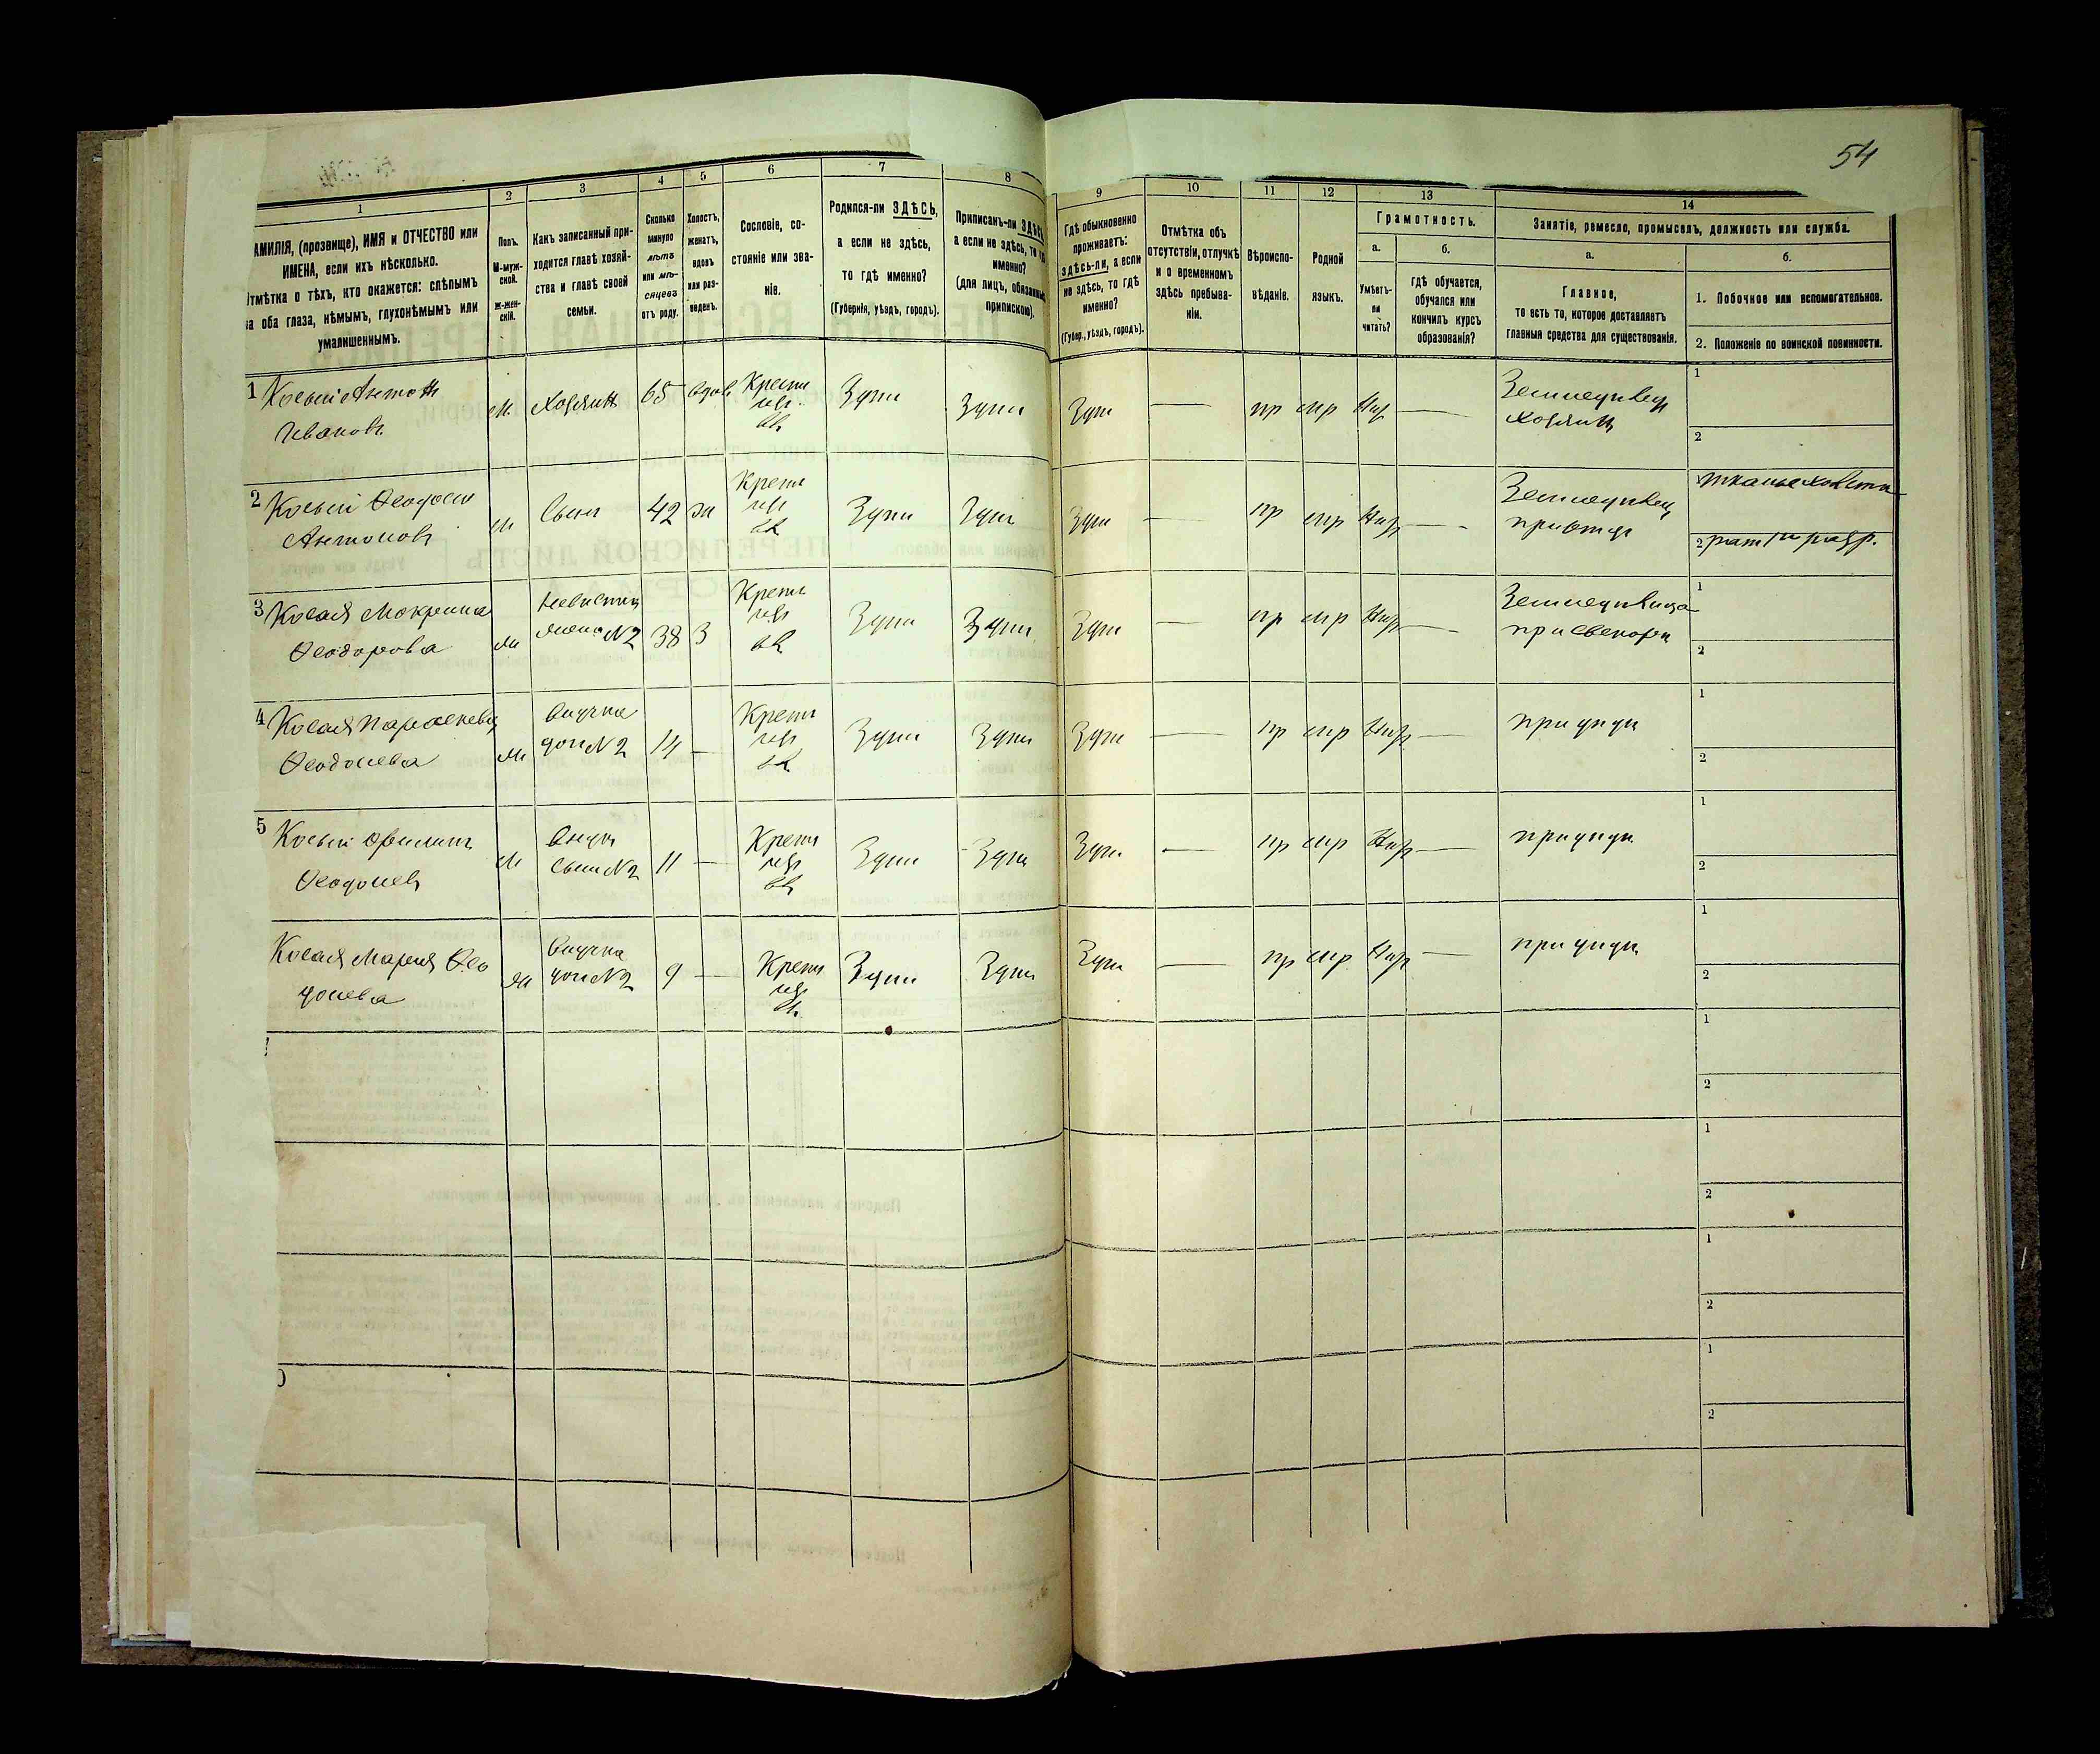 54
1 2 3 4 5 6 7 8 9 10 11 12 13 14
АМИЛІЯ, (прозвище), ИМЯ и ОТЧЕСТВО или
ИМЕНА, если ихъ нѣсколько.
Отмѣтка о тѣхъ, кто окажется: слѣпымъ
на оба глаза, нѣмымъ, глухонѣмымъ или
умалишеннымъ.
Полъ.
М-муж-
ской.
Ж-жен-
скій.
Какъ записанный при-
ходится главѣ хозяй-
ства и главѣ своей
семьи.
Сколько
минуло
лѣтъ
или мѣ-
сяцевъ
отъ роду.
Холостъ,
женатъ,
вдовъ
или раз-
веденъ.
Сословіе, со-
стояніе или зва-
ніе.
Родился-ли ЗДѢСЬ,
а если не здѣсь,
то гдѣ именно?
(Губернія, уѣздъ, городъ).
Приписанъ-ли ЗДѢСЬ,
а если не здѣсь, то гдѣ
именно?
(для лицъ, обязанныхъ
припискою).
Гдѣ обыкновенно
проживаетъ:
здѣсь-ли, а если
не здѣсь, то гдѣ
именно?
(Губер., уѣздъ, городъ).
Отмѣтка объ
отсутствіи, отлучкѣ
и о временномъ
здѣсь пребыва-
ніи.
Вѣроиспо-
вѣданіе.
Родной
языкъ.
Грамотность.
а.
Умѣетъ-
ли
читать?
б.
Гдѣ обучается,
обучался или
кончилъ курсъ
образованія?
Занятіе, ремесло, промыселъ, должность или служба.
а.
Главное,
то есть то, которое доставляетъ
главныя средства для существованія.
б.
1. Побочное или вспомогательное.
2. Положеніе по воинской повинности.
1 Косый Антонъ
Ивановъ
м хозяинъ 65 вдов Крест
Здѣсь Здѣсь Здѣсь — пр мр Нѣт —
Земледѣлец
хозяин
1
2
2 Косый Феодосій
Антоновъ
м Сынъ 42 Крест
Здѣсь Здѣсь Здѣсь — пр мр Нѣт —
Земледѣлец
при отцѣ
2 рат разр.
3 Косая Мокрина
Феодорова
невѣстка
жена N2 38 З Крест
Здѣсь Здѣсь Здѣсь — пр мр Нѣт —
1
2
4 Косая Параскева
Феодосіева
внучка
доч N2 14 — Крест
Здѣсь Здѣсь Здѣсь — пр мр Нѣт —
при дѣдѣ
1
2
5 Косый Филиппъ
Феодосіев
м внукъ
Сынъ N2 11 — Крест
Здѣсь Здѣсь Здѣсь — пр мр Нѣт —
при дѣдѣ
1
2
Косая Мария Фео
досіева
внучка
доч N2 9 — Крест
Здѣсь Здѣсь Здѣсь — пр мр Нѣт —
при дѣдѣ
1
2
1
2
1
2
1
2
1
2